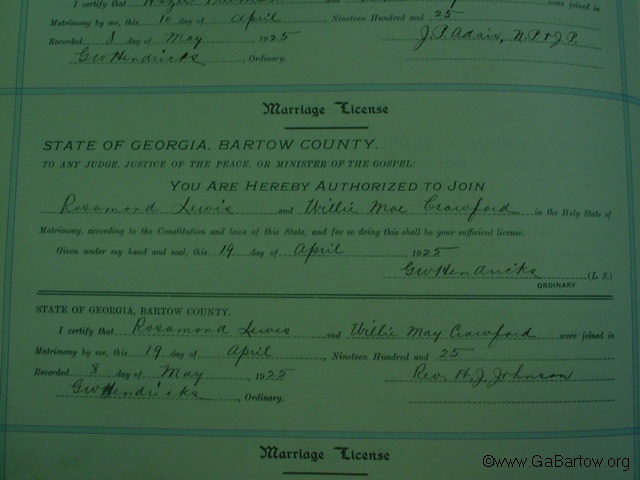 I certify that Hazel and were joined in
Matrimony by me, this 10 day of April, Nineteen Hundred and 25
Recorded 8 day of May, 1925 J. P. Adair, N.P. & J.P.
GW Hendricks, Ordinary.
Marriage License
STATE OF GEORGIA, BARTOW COUNTY.
TO ANY JUDGE, JUSTICE OF THE PEACE, OR MINISTER OF THE GOSPEL:
YOU ARE HEREBY AUTHORIZED TO JOIN
Rosamond Lewis and Willie Mae Crawford in the Holy State of
Matrimony, according to the Constitution and laws of this State, and for so doing this shall be your sufficient license.
Given under my hand and seal, this 19 day of April, 1925
GW Hendricks (L. S.)
ORDINARY
STATE OF GEORGIA, BARTOW COUNTY.
I certify that Rosamond Lewis and Willie May Crawford were joined in
Matrimony by me, this 19 day of April, Nineteen Hundred and 25
Recorded 8 day of May, 1925 Rev. H. J. Johnson
GW Hendricks, Ordinary.
Marriage License
©www.GaBartow.org